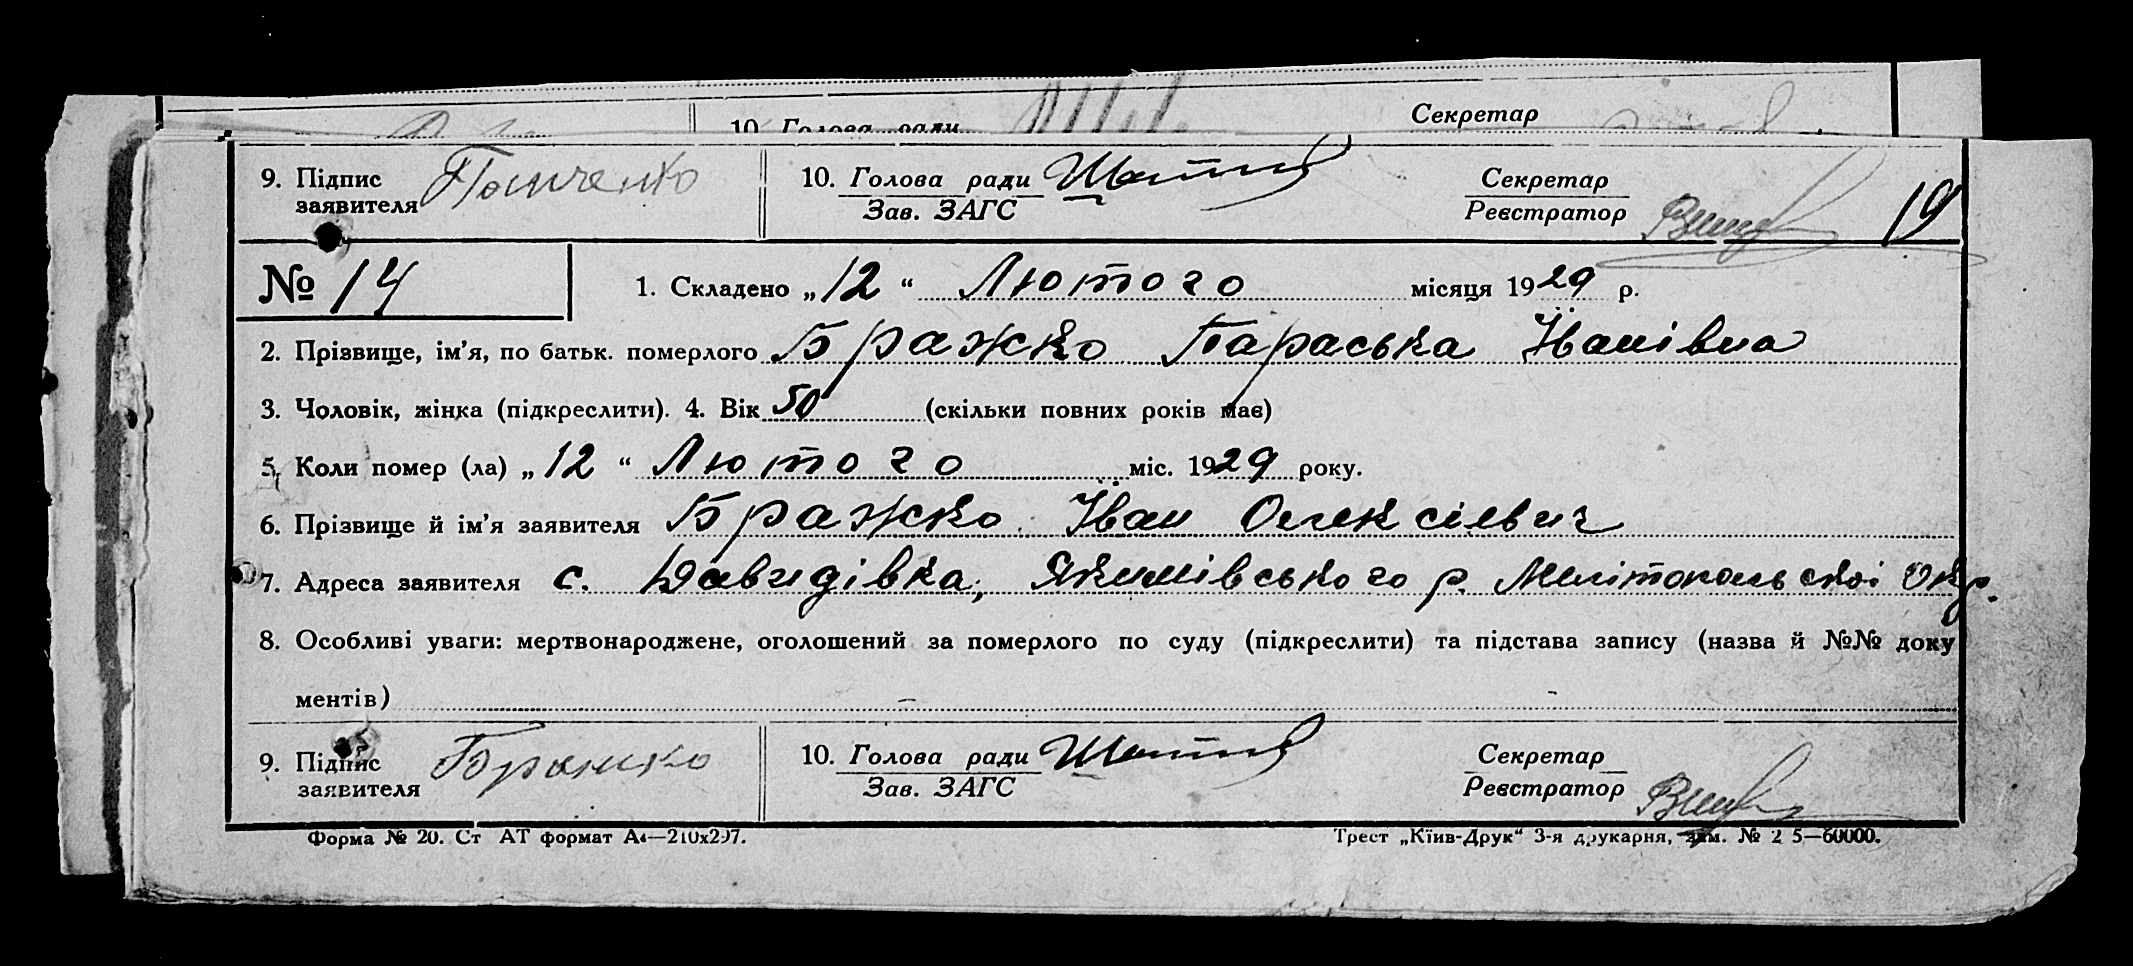 10 Голова ради Секретар
9. Підпис заявителя Панченко 10. Голова ради Зав. ЗАГС Секретар Реєстратор 19
№ 14 1. Складено „12“ Лютого місяця 1929 р.
2. Прізвище, ім’я, по батьк. померлого Бражко Параська Іванівна
3. Чоловік, жінка (підкреслити). 4. Вік 50 (скільки повних років має)
5. Коли помер (ла) „12“ Лютого міс. 1929 року.
6. Прізвище й ім’я заявителя Бражко Іван Олексієвич
7. Адреса заявителя с. Давидівка, Якимівського р. Мелітопольської Окр.
8. Особливі уваги: мертвонароджене, оголошений за померлого по суду (підкреслити) та підстава запису (назва й №№ доку
ментів) – -
9. Підпис заявителя Бражко 10. Голова ради Зав. ЗАГС Секретар Реєстратор
Форма № 20. Ст АТ формат А4—210х297. Трест „Київ-Друк“ 3-я друкарня, зам. № 2 5—60000.